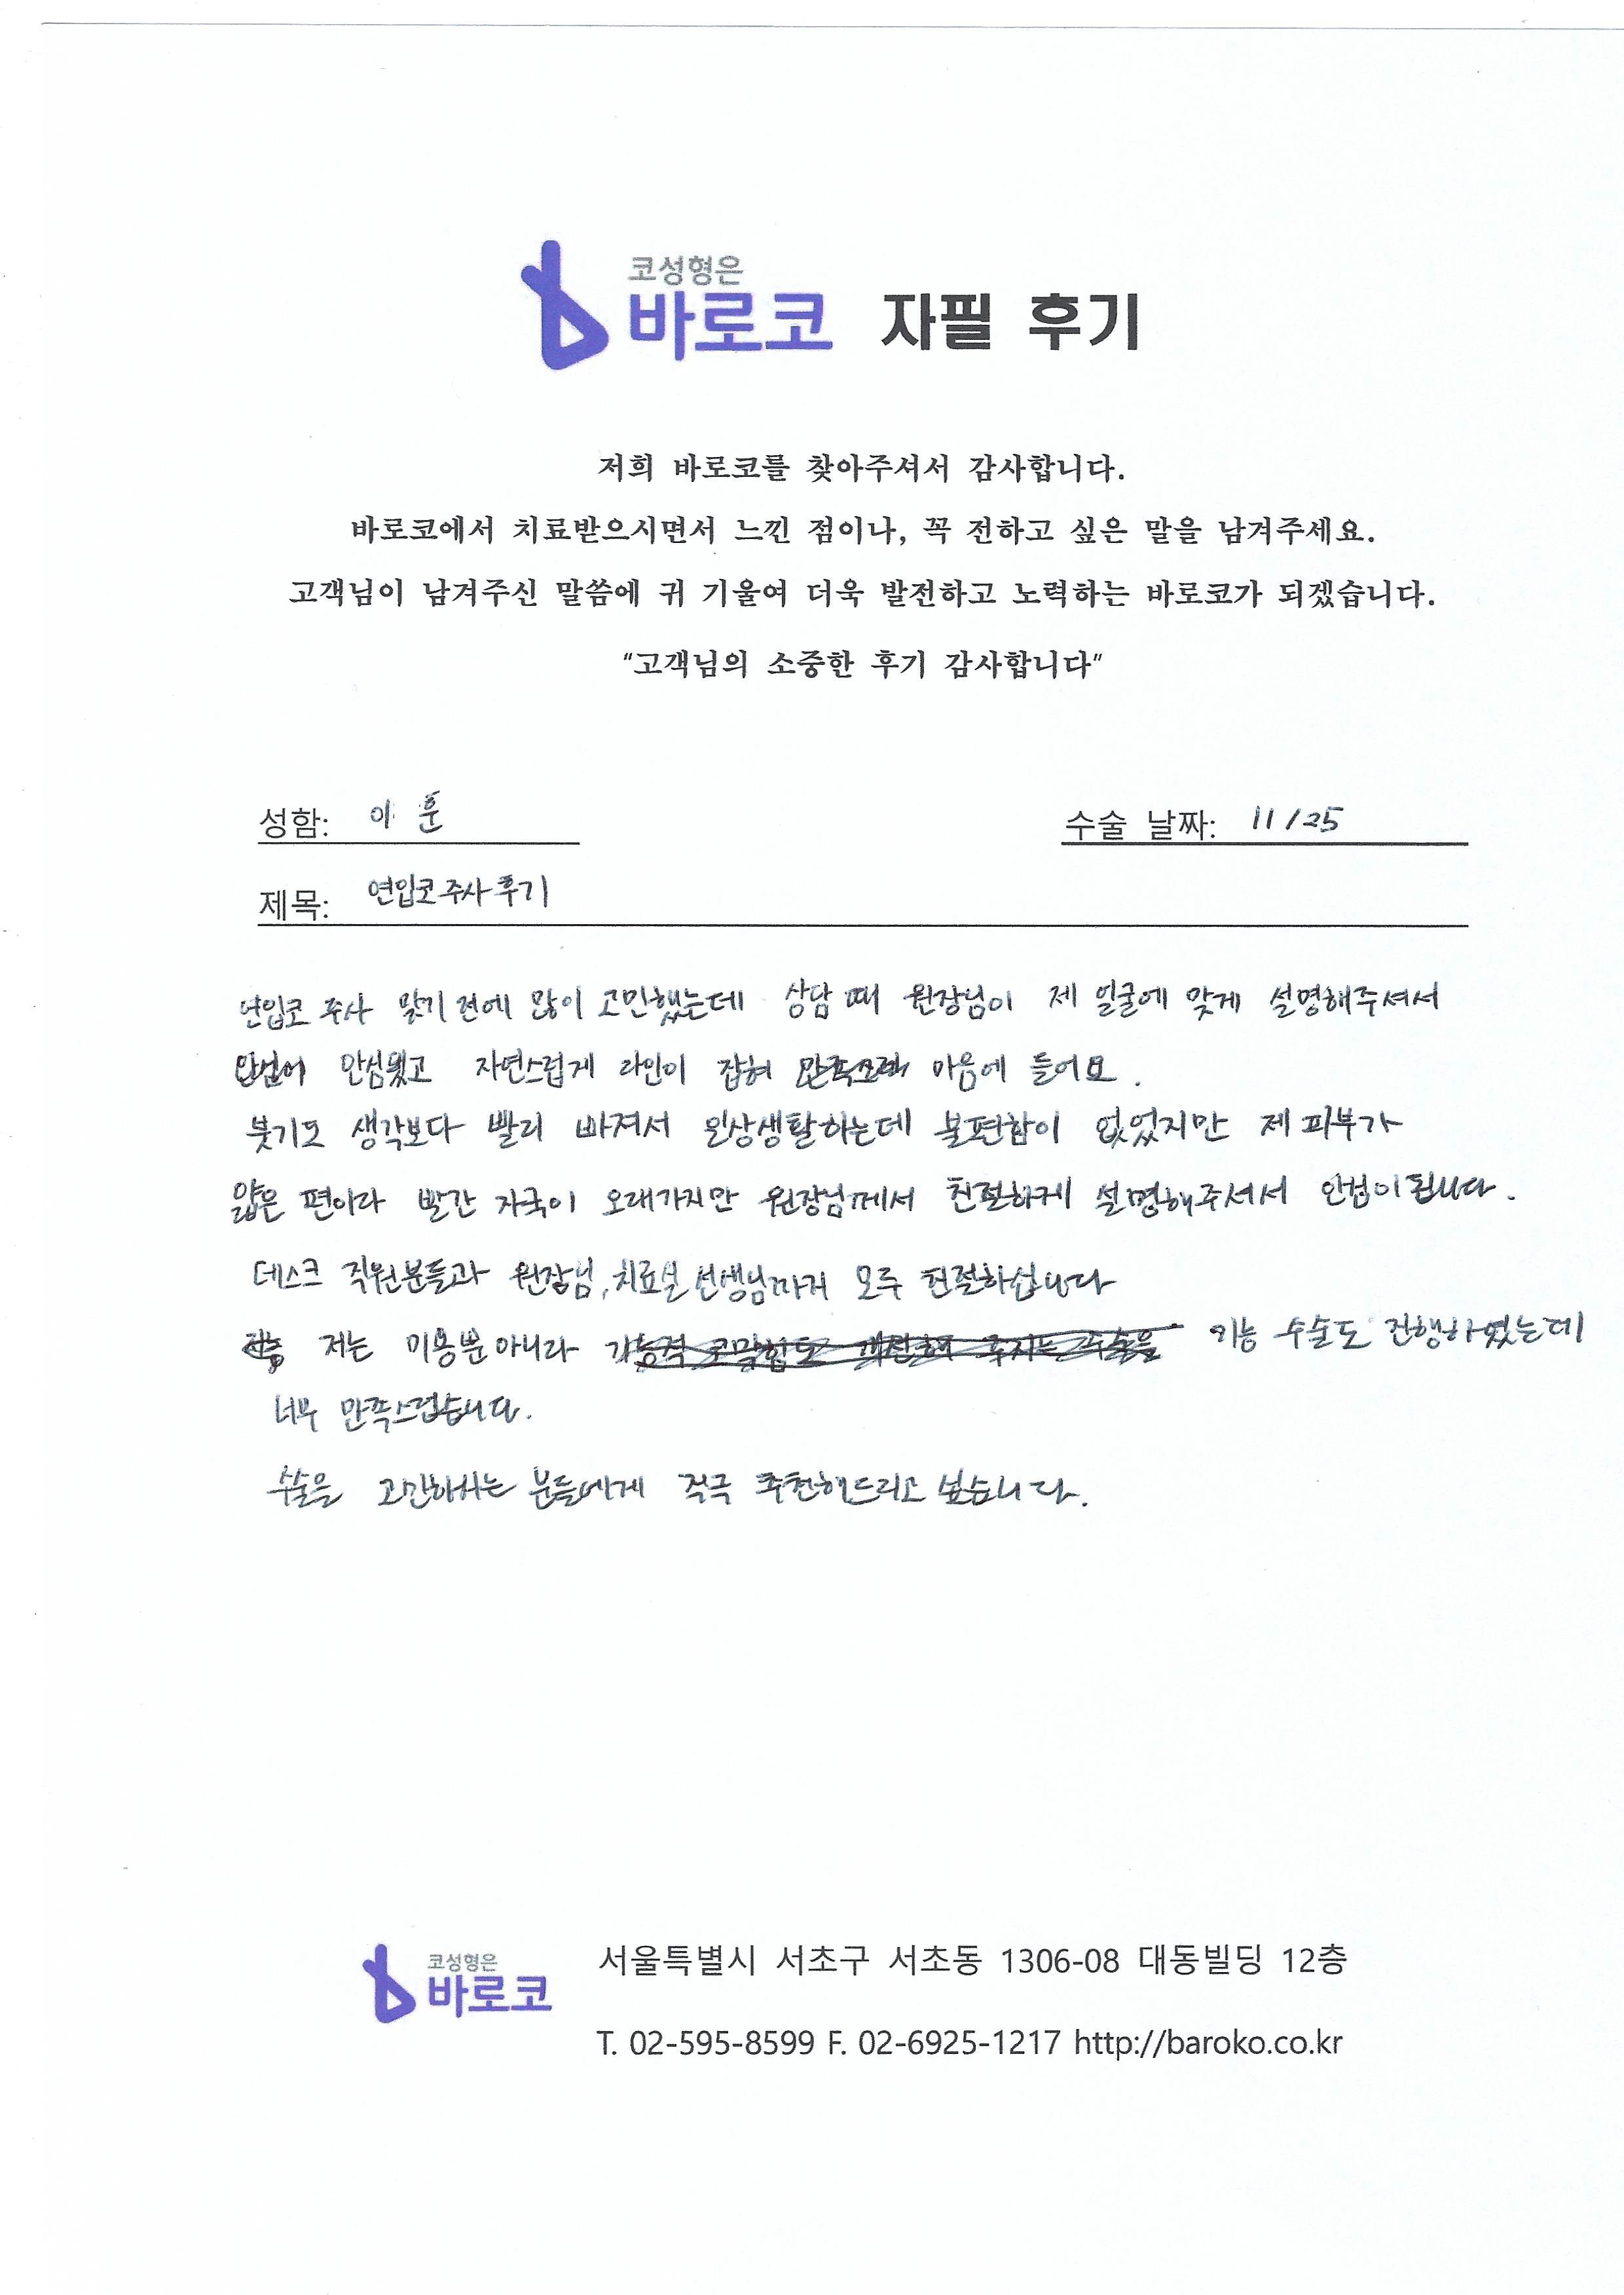 코성형은
바로코 자필 후기
저희 바로코를 찾아주셔서 감사합니다.
바로코에서 치료받으시면서 느낀 점이나, 꼭 전하고 싶은 말을 남겨주세요.
고객님이 남겨주신 말씀에 귀 기울여 더욱 발전하고 노력하는 바로코가 되겠습니다.
"고객님의 소중한 후기 감사합니다"
성함: 이 훈 수술 날짜: 11/25
제목: 연입코 주사 후기
연입코 주사 맞기 전에 많이 고민했는데 상담 때 원장님이 제 얼굴에 맞게 설명해주셔서
안심됐고 자연스럽게 라인이 잡혀 마음에 들어요.
붓기도 생각보다 빨리 빠져서 일상생활하는데 불편함이 없었지만 제 피부가
얇은 편이라 빨간 자국이 오래가지만 원장님께서 친절하게 설명해주셔서 안심이 됩니다.
데스크 직원분들과 원장님, 치료실 선생님까지 모두 친절하십니다
저는 미용뿐 아니라 기능 수술도 진행하였는데
너무 만족스럽습니다.
수술을 고민하시는 분들에게 적극 추천해드리고 싶습니다.
코성형은
바로코
서울특별시 서초구 서초동 1306-08 대동빌딩 12층
T. 02-595-8599 F. 02-6925-1217 http://baroko.co.kr